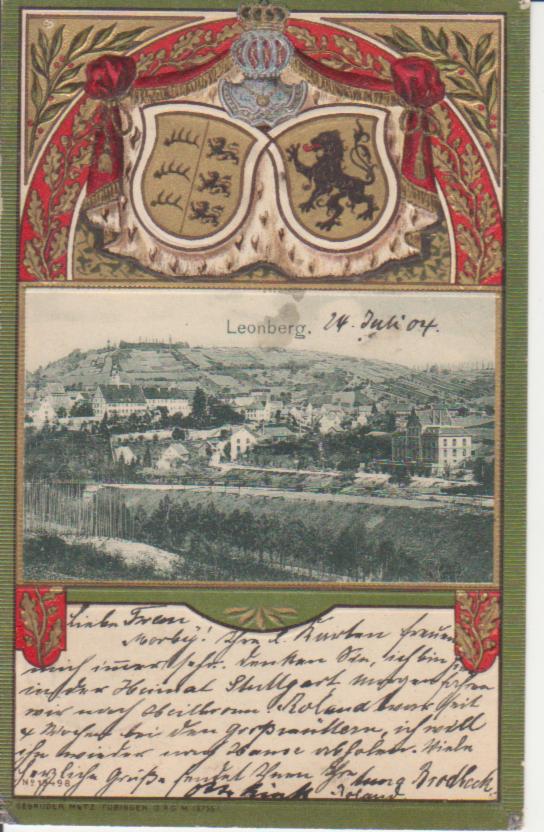 Leonberg. 24. Juli 04.
Liebe Frau
Ihre l. Karten freuen
mich immer sehr. Denken Sie, ich bin
in der Heimat Stuttgart morgen fahren
wir nach Heilbronn. Roland war seit
4 Wochen bei den Großmüttern, ich will
ihn wieder nach Hause abholen. Viele
herzliche Grüße sendet Ihnen Ihre
Roland
No 15498
GEBRÜDER METZ, TÜBINGEN. D.R.G.M.